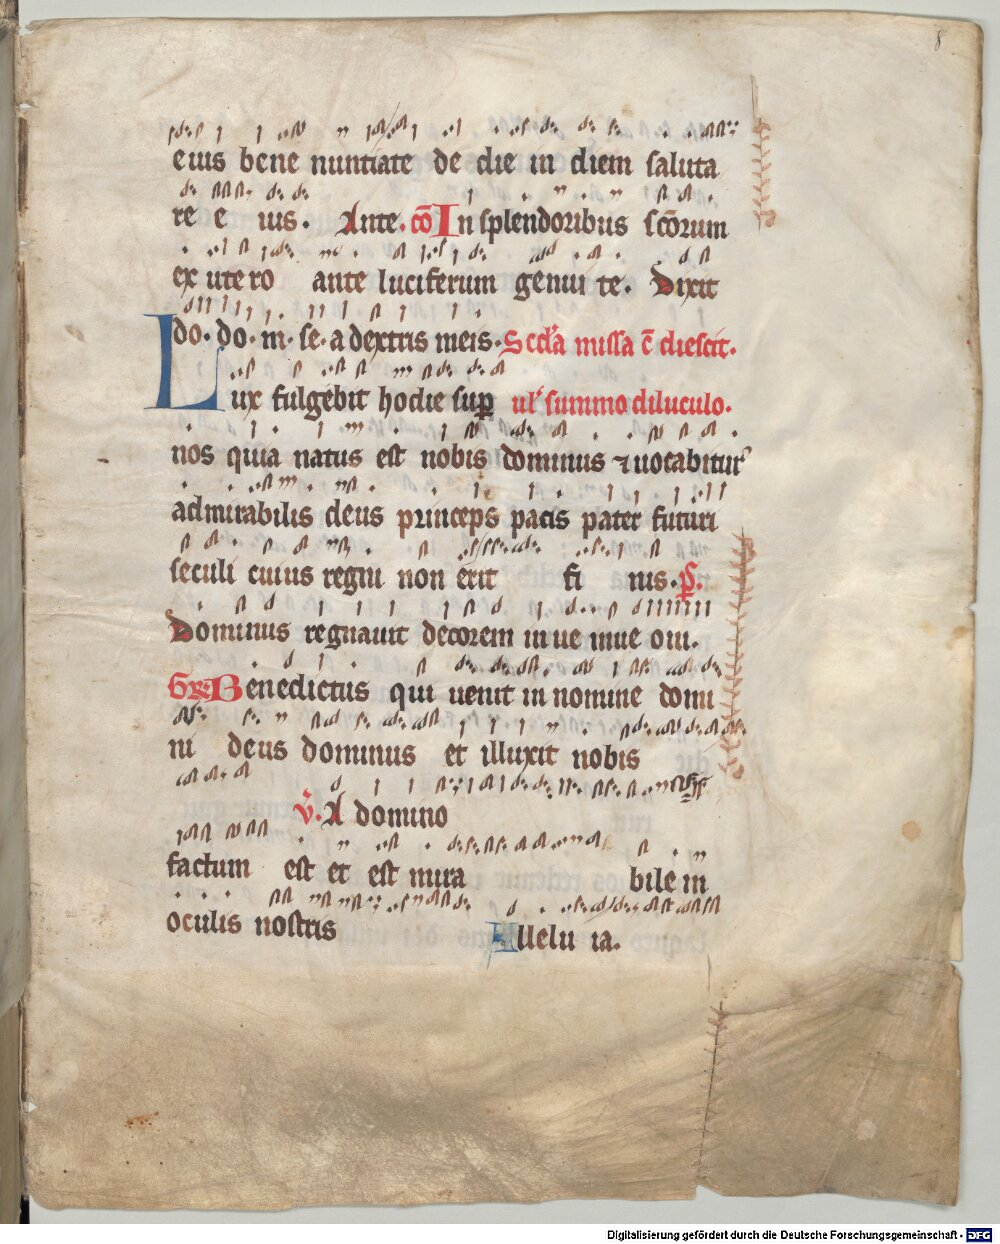 8
eius bene nuntiate de die in diem saluta
re e ius. Ante. cō In splendoribus scōrum
ex utero ante luciferum genui te. Dixit
do. do. m. se. a dextris meis. Scd'a missa c̄ diescit.
Lux fulgebit hodie sup ul' summo diluculo.
nos quia natus est nobis dominus ⁊ uocabitur
admirabilis deus princeps pacis pater futuri
seculi cuius regni non erit fi nis. p̄s.
Dominus regnauit decorem in ue in ue o ui.
Gr̄. Benedictus qui uenit in nomine domi
ni deus dominus et illuxit nobis
v̄. A domino
factum est et est mira bile in
oculis nostris Allelu ia.
Digitalisierung gefördert durch die Deutsche Forschungsgemeinschaft - DFG